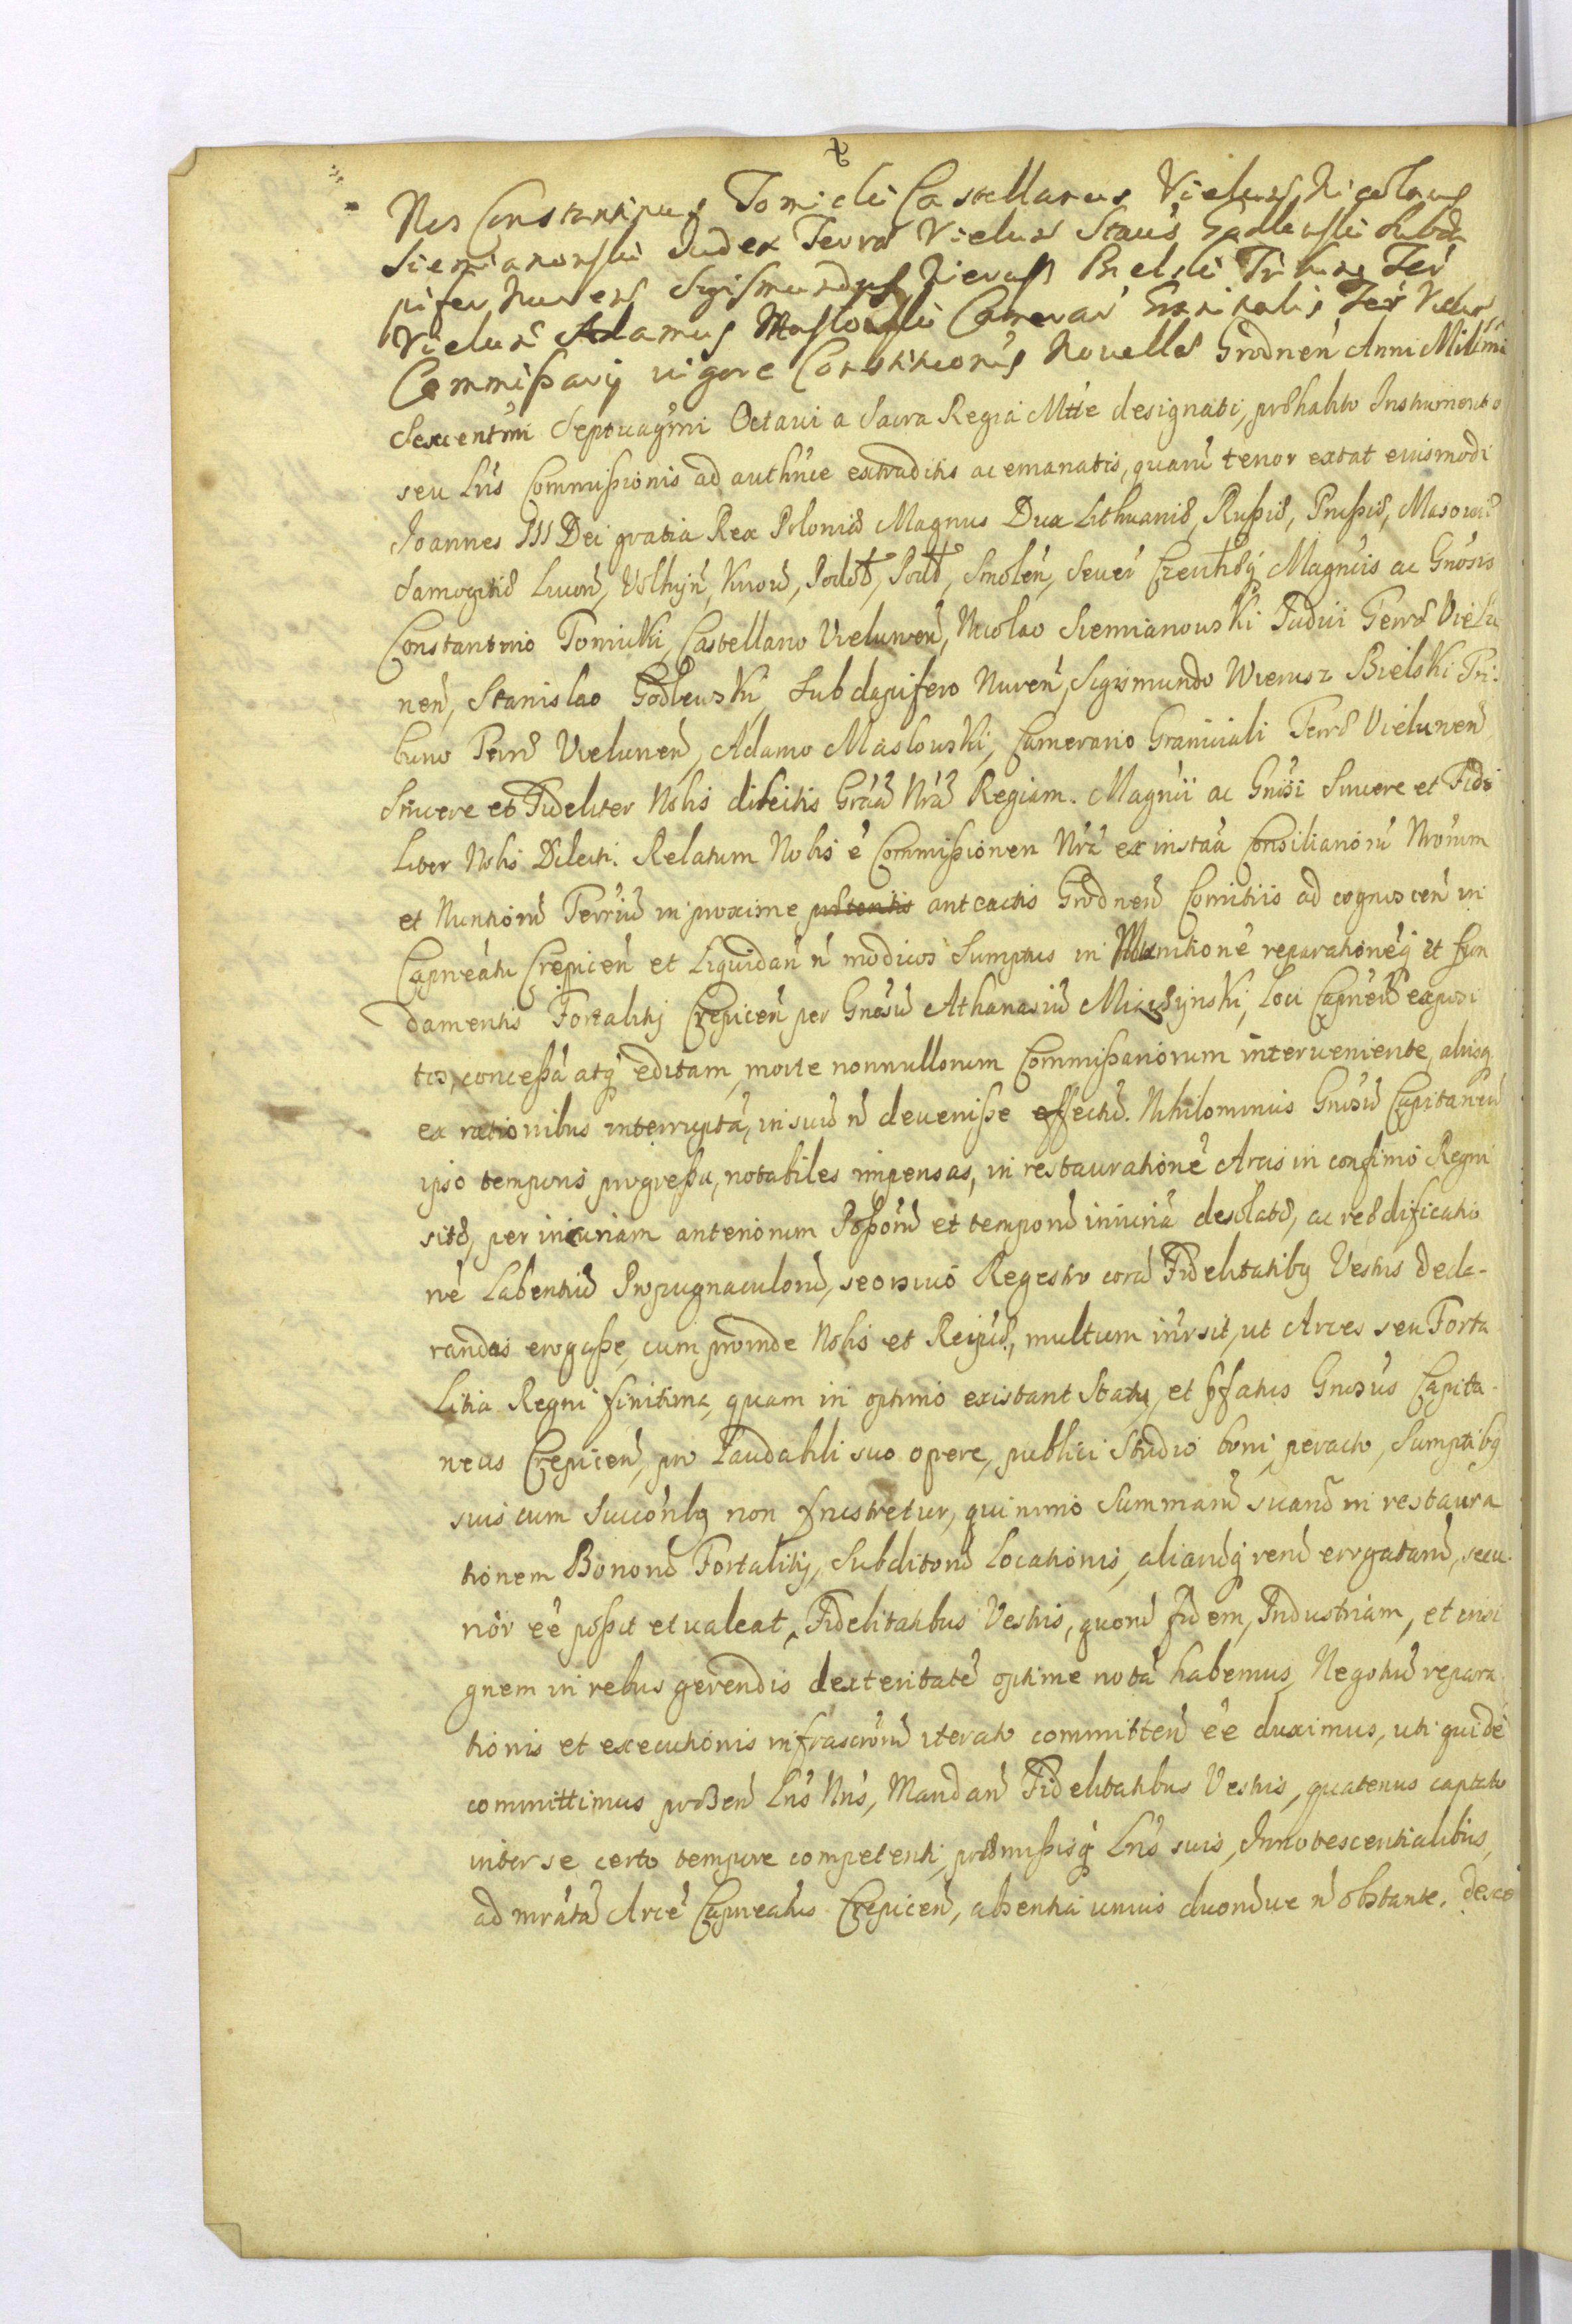 Nos Constantinus Tomicki Castellanus Vielunẽ Nicolaus
Siemianowski Judex Terræ Vielun Staus Godlewski Subda
pifer Nurens Sigismundus Wierusz Bielski Tribunus Ter
Vielun Adamus Masłowski Camerar Granicalis Ter Vielun
Commißarij vigore Constitutionis Novellæ Grodneń Anni Millmi
Sexcentmi Septuagmi Octavi a Sacra Regia Mtte designati, præhabito Instrumento
seu Lris Commißionis ad authnce extraditis ac emanatis, quarũ tenor extat eiusmodi
Joannes III Dei gratia Rex Poloniæ Magnus Dux Lithuaniæ, Rußiæ, Prußiæ, Masoviæ
Samogitiæ Livoñ, Volhyñ, Kijoviæ, Podol, Podl, Smoleń, Seveř Czernihoq Magncis ac Gnosis
Constantino Tomicki, Castellano Vielunen, Nicolao Siemianowski Judici Terræ Vielu
neñ, Stanislao Godlewski, Subdapifero Nureń, Sigismundo Wierusz Bielski Tri:
buno Terræ Vieluneñ, Adamo Maslowski, Camerario Graniciali Terræ Vieluneñ,
Sincere et Fideliter Nobis dilectis Grãã Nrã Regiam. Magncii ac Gnosi Sincere et Fide
liter Nobis Dilecti. Relatum Nobis ẽ Commißionem Nrã ex instaã Consiliariorũ Nrorum
et Nuntiorũ Terriũ in proxime anteactis Grodneñ Comitiis ad cognoscen in
Capneatu Crepiceń et Liquidań ñ modicos Sumptus in Munitionẽ reparationẽq et fun
damentis Fortalitij Crepiceń per Gnosũ Athanasiũ Miączyński, Loci Capneũ exposi
tos, conceßã atq editam, morte nonnullorum Commißariorum interveniente, alijsq
ex rationibus interruptã, in suũ ñ deveniße effectũ. Nihilominus Gnosũ Capitaneũ
ipso temporis progreßu, notabiles impensas, in restaurationẽ Arcis in confinio Regni
sitæ, per incuriam anteriorum Poßorũ et temporũ iniuriã desolatæ, ac reædificatio
nẽ Labentiũ Propugnaculorũ, seorsivo Regestro corã Fidelitatibq Vestris decla-
randas erogaße, cum proinde Nobis et Reipub., multum intersit, ut Arces seu Forta
litia Regni finitima, quam in optimo existant Statu, et præfatus Gnosus Capita-
neus Crepiceń, pro laudabili suo opere, publici Studio boni peracto, Sumptibq
suis cum Successoribq non frustretur, quinimo Summarũ suarũ in restaura
tionem Bonorũ Fortalitij, Subditorũ Locationis, aliarũq rerũ errgatarũ, secu-
rior ẽẽ poßit et valeat, Fidelitatibus Vestris, quorũ fidem, Industriam, et insi
gnem in rebus gerendis dexteritatẽ optime notã habemus, Negotiũ repara
tionis et executionis infrascriptorũ iterato committeñ ẽẽ duximus, uti quidẽ
committimus præseñ Lris Nris, Mandañ Fidelitatibus Vestris, quatenus captato
inter se certo tempore competenti, præmißisq Lris suis, Innotescentialibus,
ad mratã Arcẽ Capneatus Crepiceñ, absentia unius duorũve ñ obstante.